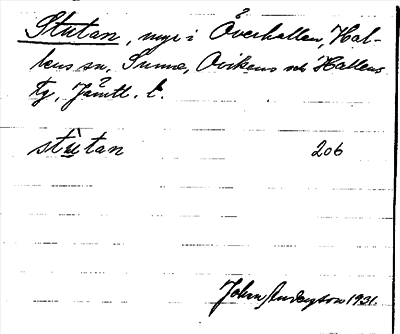 Stutan, myr i Överhallen, Hal-
lens sn, Sunne, Ovikens och Hallens
tg, Jämtl. l.
stùtan 206
John Anderzson 1931.